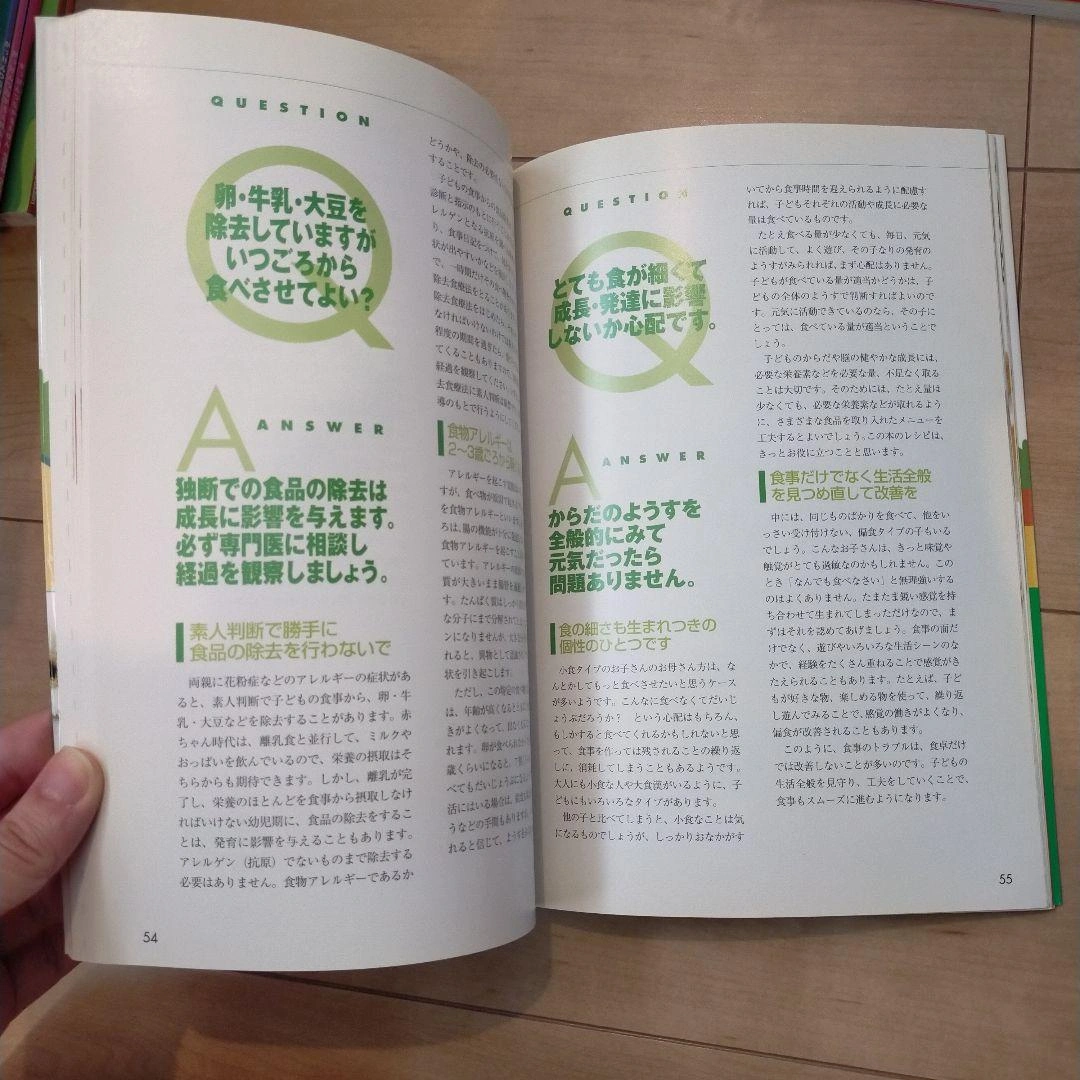 QUESTION
卵・牛乳・大豆を
除去していますが
いつごろから
食べさせてよい?
A ANSWER
独断での食品の除去は
成長に影響を与えます。
必ず専門医に相談し
経過を観察しましょう。
素人判断で勝手に
食品の除去を行わないで
両親に花粉症などのアレルギーの症状があ
ると、素人判断で子どもの食事から、卵・牛
乳・大豆などを除去することがあります。赤
ちゃん時代は、離乳食と並行して、ミルクや
おっぱいを飲んでいるので、栄養の摂取はそ
ちらからも期待できます。しかし、離乳が完
了し、栄養のほとんどを食事から摂取しなけ
ればいけない幼児期に、食品の除去をするこ
とは、発育に影響を与えることもあります。
アレルゲン(抗原)でないものまで除去する
必要はありません。食物アレルギーであるか
54
どうかや、除去の必要
することです。
子どもの食事からの
診断と指示のもとに
レルゲンとなる
り、食事日記をつけて、
状が出やすいかなどを
で、一時期だけその食
除去食療法をとること
除去食療法をはじめたら、
なければいけないわけでは
程度の期間を過ぎたら、
てくることもありますので、
経過を観察してください。
去食療法に素人判断は
導のもとで行うように
食物アレルギーは
2〜3歳ごろから
アレルギーを起こす
すが、食べ物が原因で
を食物アレルギーといい
ろは、腸の機能が十分に
食物アレルギーを起こす
ています。アレルギーの
質が大きいまま腸壁を
す。たんぱく質はしっかり
な分子にまで分解されて
ンになりませんが、大きな
れると、異物として認識
状を引き起こします。
ただし、この特定の食
は、年齢が高くなるとともに
きがよくなって、出なくな
れます。卵が食べられなか
歳くらいになると、
べてもだいじょうぶになる
活にはいる場合は、
うなどの手間もあります。
れると信じて、ようすを
QUESTION
とても食が細くて
成長・発達に影響
しないか心配です。
A ANSWER
からだのようすを
全般的にみて
元気だったら
問題ありません。
食の細さも生まれつきの
個性のひとつです
小食タイプのお子さんのお母さん方は、な
んとかしてもっと食べさせたいと思うケース
が多いようです。こんなに食べなくてだいじ
ょうぶだろうか? という心配はもちろん、
もしかすると食べてくれるかもしれないと思
って、食事を作っては残されることの繰り返
しに、消耗してしまうこともあるようです。
大人にも小食な人や大食漢がいるように、子
どもにもいろいろなタイプがあります。
他の子と比べてしまうと、小食なことは気
になるものでしょうが、しっかりおなかがす
いてから食事時間を迎えられるように配慮す
れば、子どもそれぞれの活動や成長に必要な
量は食べているものです。
たとえ食べる量が少なくても、毎日、元気
に活動して、よく遊び、その子なりの発育の
ようすがみられれば、まず心配はありません。
子どもが食べている量が適当かどうかは、子
どもの全体のようすで判断すればよいので
す。元気に活動できているのなら、その子に
とっては、食べている量が適当ということで
しょう。
子どものからだや脳の健やかな成長には、
必要な栄養素などを必要な量、不足なく取る
ことは大切です。そのためには、たとえ量は
少なくても、必要な栄養素などが取れるよう
に、さまざまな食品を取り入れたメニューを
工夫するとよいでしょう。この本のレシピは、
きっとお役に立つことと思います。
食事だけでなく生活全般
を見つめ直して改善を
中には、同じものばかりを食べて、他をい
っさい受け付けない、偏食タイプの子もいる
でしょう。こんなお子さんは、きっと味覚や
触覚がとても過敏なのかもしれません。この
とき「なんでも食べなさい」と無理強いする
のはよくありません。たまたま鋭い感覚を持
ち合わせて生まれてしまっただけなので、ま
ずはそれを認めてあげましょう。食事の面だ
けでなく、遊びやいろいろな生活シーンのな
かで、経験をたくさん重ねることで感覚がき
たえられることもあります。たとえば、子ど
もが好きな物、楽しめる物を使って、繰り返
し遊んでみることで、感覚の働きがよくなり、
偏食が改善されることもあります。
このように、食事のトラブルは、食卓だけ
では改善しないことが多いのです。子どもの
生活全般を見守り、工夫をしていくことで、
食事もスムーズに進むようになります。
55